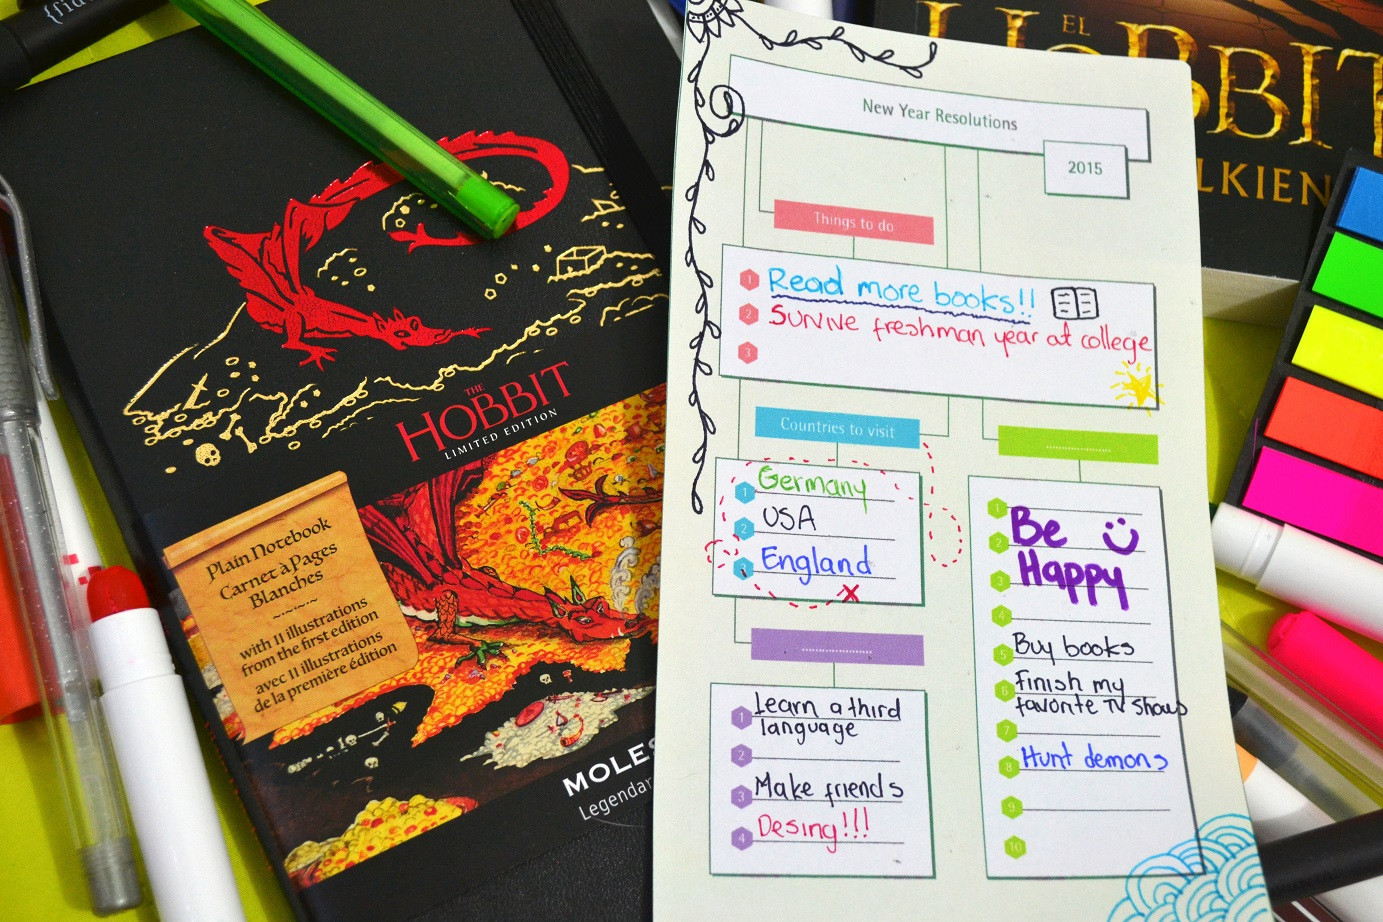 THE
HOBBIT
LIMITED EDITION
Plain Notebook
Carnet à Pages
Blanches
with 11 illustrations
from the first edition
avec 11 illustrations
de la première édition
EL
HOBBIT
New Year Resolutions
2015
Things to do
1 Read more books!!
2 Survive freshman year at college
3
Countries to visit
1 Germany
2 USA
3 England
1 Learn a third
language
2
3 Make friends
4 Desing!!!
1
2 Be
3 Happy
4
5 Buy books
6 Finish my
favorite TV shows
7
8 Hunt demons
9
10